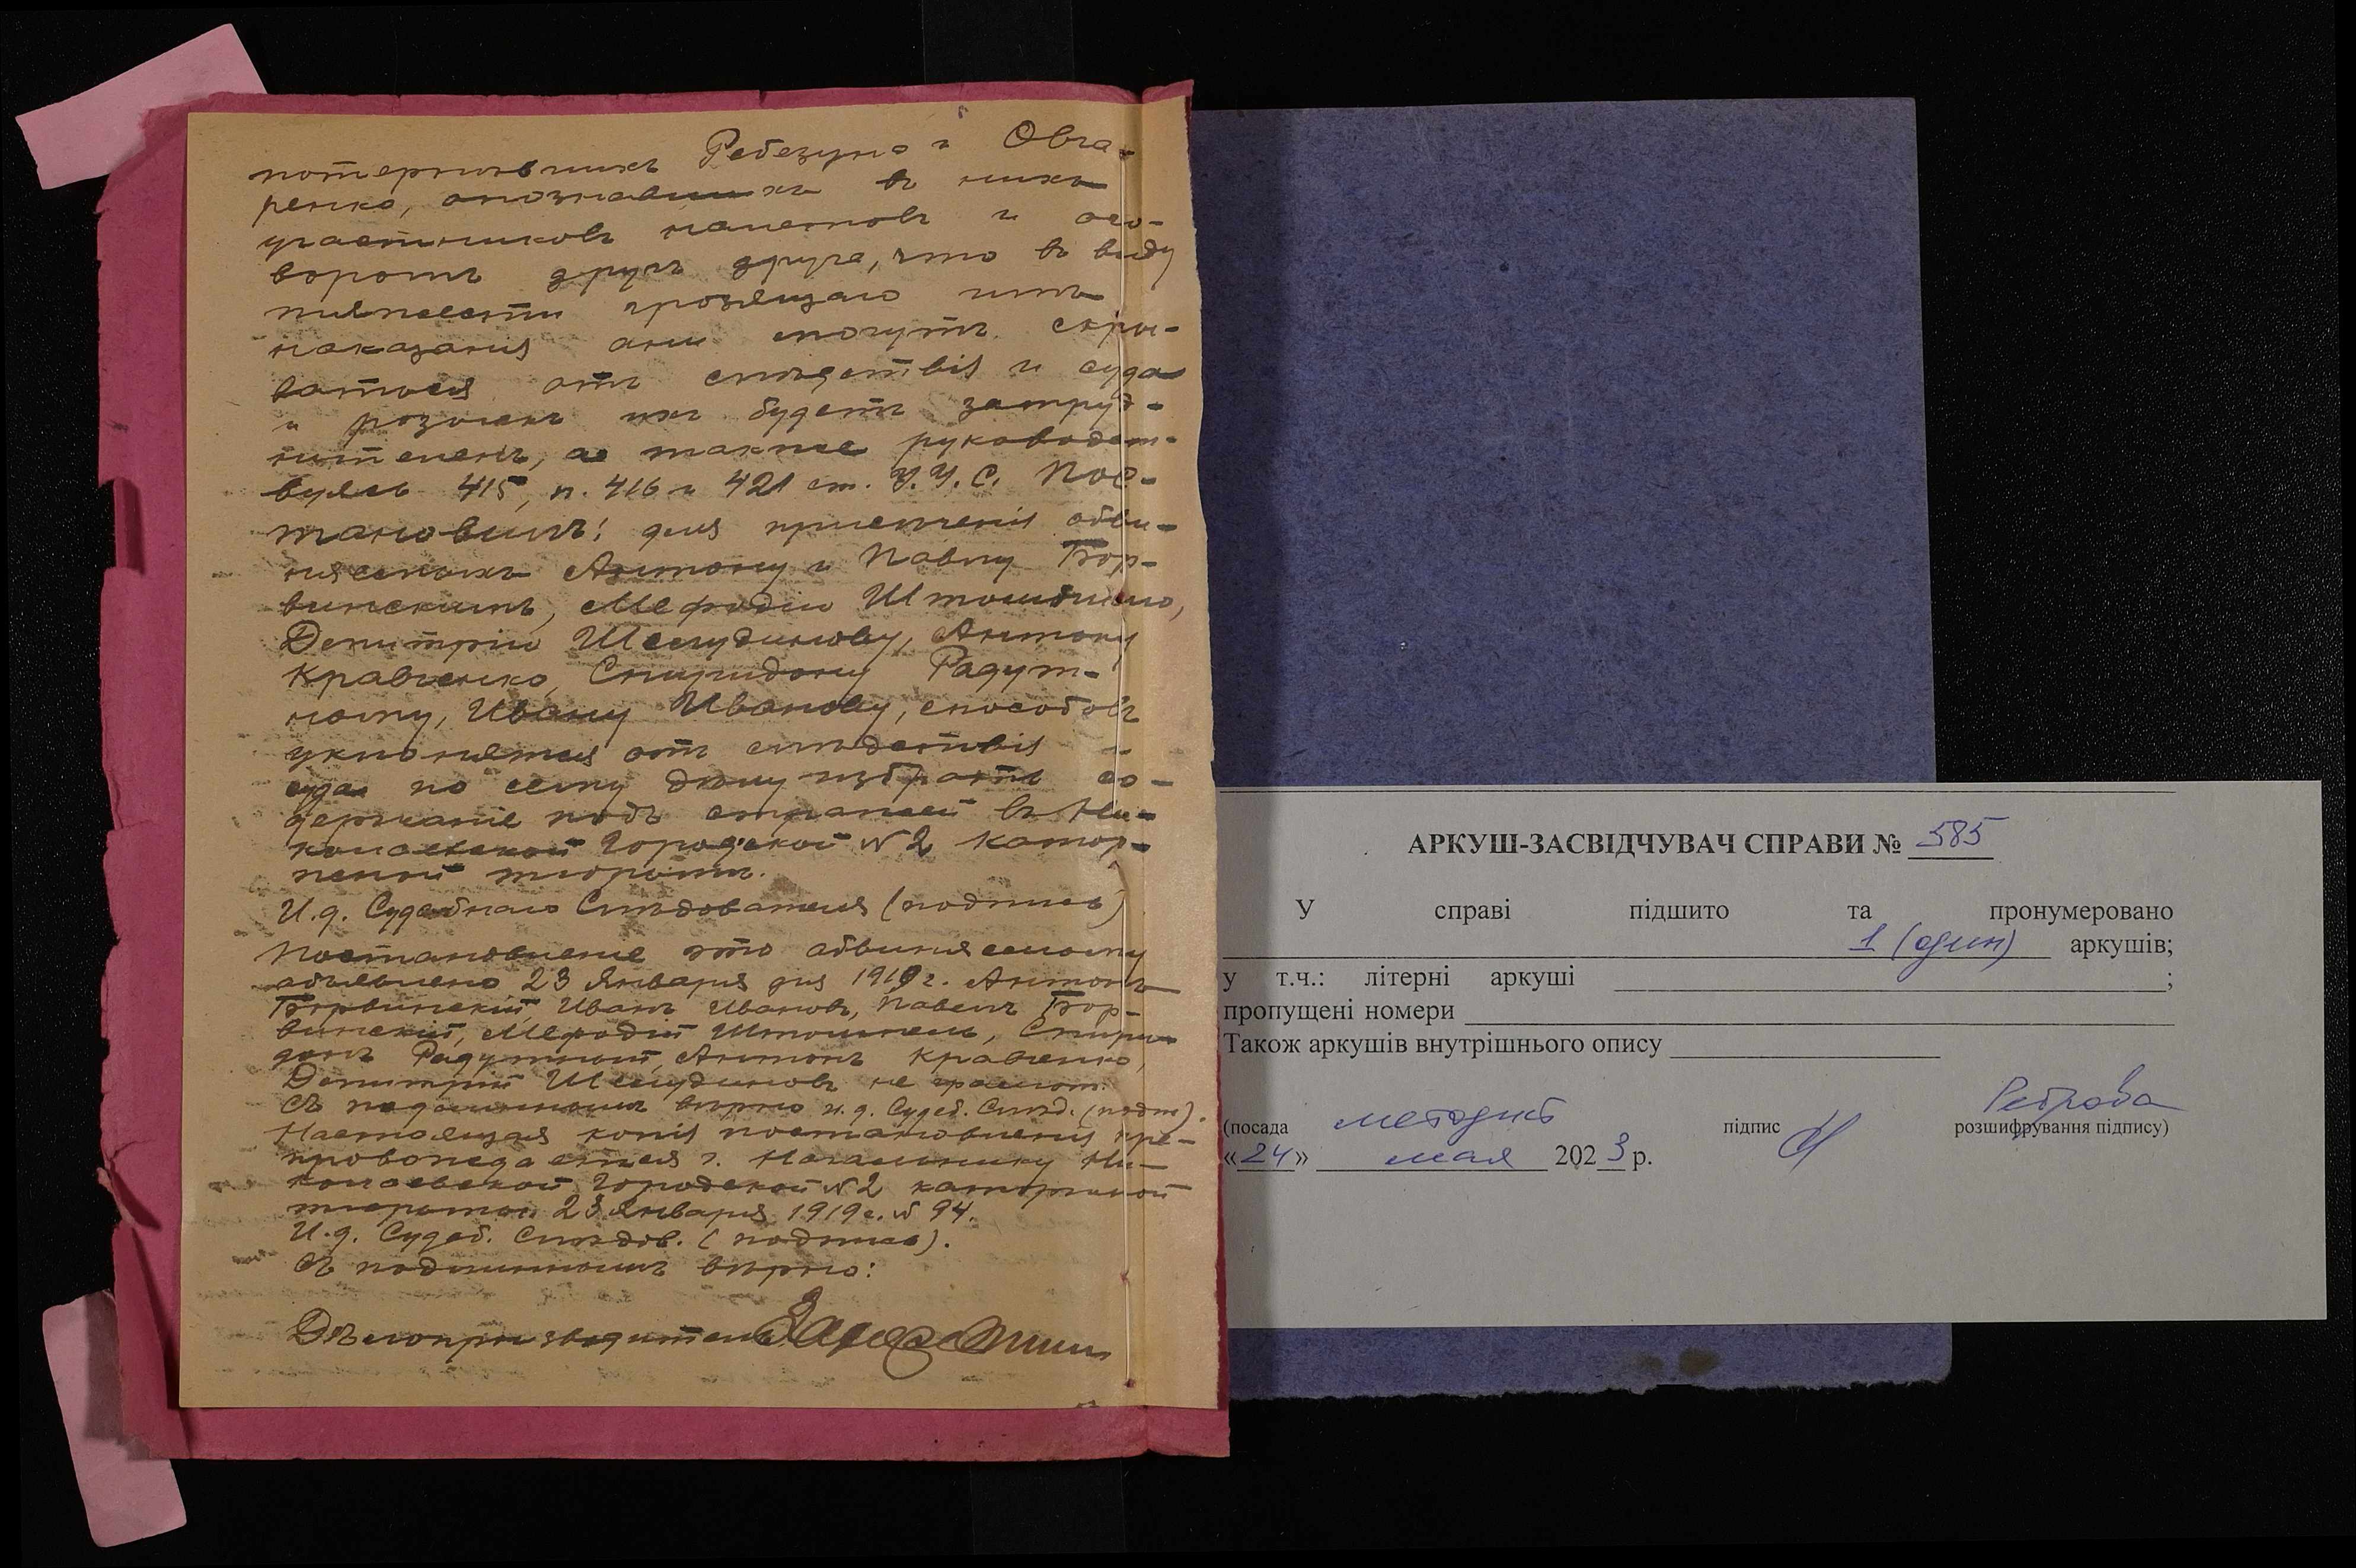 потерпѣвшихъ Ребезуна и Овча-
ренко, опознавшихъ въ нихъ
участниковъ налетовъ и ого-
воромъ другъ друга, что въ виду
тяжести грозящаго имъ
наказанія они могутъ скры-
ваться отъ слѣдствія и суда
и розыскъ ихъ будетъ затруд-
нителенъ, а также руководст-
вуясь 415, п. 416 и 421 ст. У.У.С. Пос-
тановилъ: для пресѣченія обви-
няемымъ Антону и Павлу Бор-
винскимъ, Мефодію
Дмитрію Шелудикову, Антону
Кравченко, Спиридону Радут-
ному, Ивану Иванову, способовъ
уклоняться отъ слѣдствія и
суда по сему дѣлу избрать со-
держаніе подъ стражей въ Ни-
колаевской Городской №2 катор-
жной тюрьмѣ.
И.д. Судебнаго Слѣдователя (подпись)
Постановленіе это обвиняемому
объявлено 23 Января дня 1919 г. Антонъ
Борвинскій, Иванъ Ивановъ, Павелъ Бор-
винскій, Мефодій Спири-
донъ Радутный, Антонъ Кравченко,
Дмитрій Шелудиковъ не грамот.
Съ подлиннымъ вѣрно и.д. Судеб. Слѣд. (подп).
Настоящая копія постановленія пре-
провождается г. Начальнику Ни-
колаевской Городской №2 каторжной
тюрьмы 23 Января 1919 г. № 94.
И.д. Судеб. Слѣдов. (подпись).
Съ подлиннымъ вѣрно:
Дѣлопроизводитель
АРКУШ-ЗАСВІДЧУВАЧ СПРАВИ № 585
У справі підшито та пронумеровано
1 (один) аркушів;
у т.ч.: літерні аркуші ;
пропущені номери
Також аркушів внутрішнього опису
(посада методист підпис Петрова розшифрування підпису)
«24» мая 2023 р.